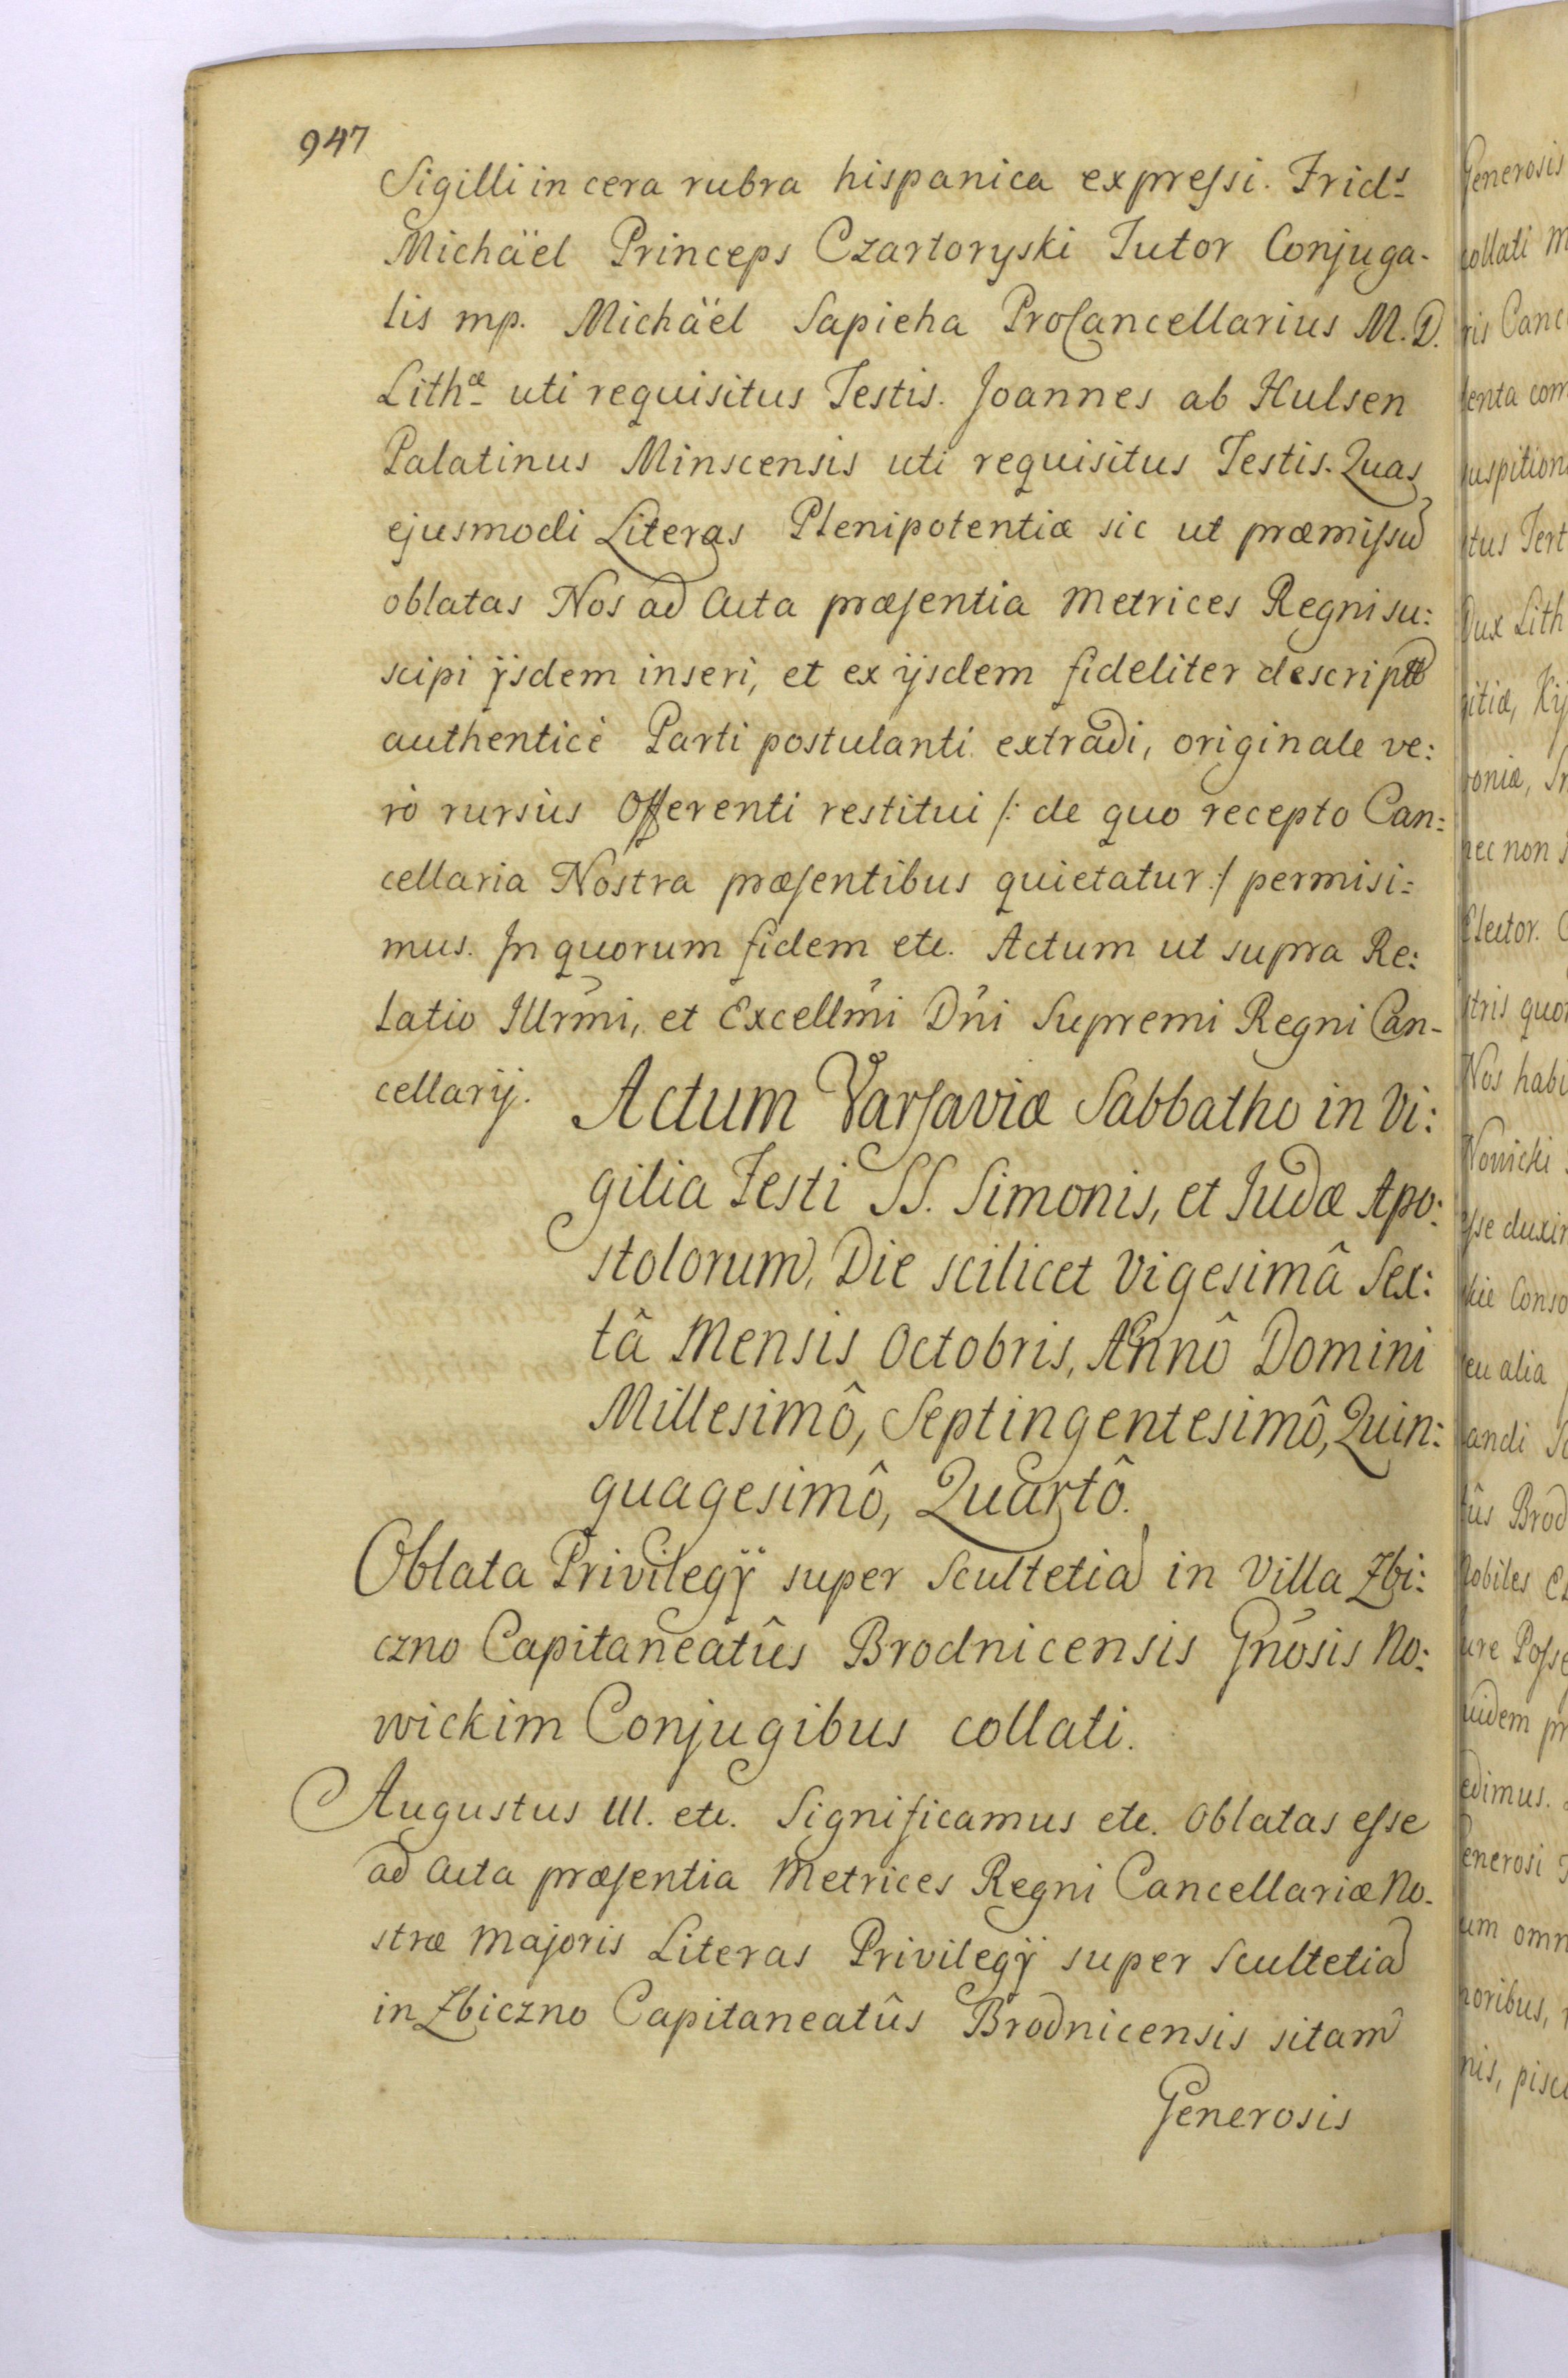 947
Sigilli in cera rubra hispanica expreſsi. Frids
Michäel Princeps Czartoryski Tutor Conjuga-
lis mp. Michäel Sapieha ProCancellarius M. D.
Lithæ uti requisitus Testis. Joannes ab Hulsen
Palatinus Minscensis uti requisitus Testis. Quas
ejusmodi Literas Plenipotentiæ sic ut præmiſsũ
oblatas Nos ad Acta præſentia Metrices Regni su:
scipi ijsdem inseri, et ex ijsdem fideliter descriptũ
authenticè Parti postulanti extradi, originale ve:
rò rursùs Offerenti restitui /: de quo recepto Can:
cellaria Nostra præſentibus quietatur :/ permisi:
mus. In quorum fidem etc. Actum ut supra Re:
latio Illrm̃i, et Excellm̃i Dñi Supremi Regni Can-
cellarij.
Actum Varſaviæ Sabbatho in Vi:
gilia Festi SS. Simonis, et Judæ Apo:
stolorum, Die scilicet Vigesimâ Sex:
tâ Mensis Octobris, Annô Domini
Millesimô, Septingentesimô, Quin:
quagesimô, Quartô.
Oblata Privilegÿ super Scultetiã in Villa Zbi:
czno Capitaneatûs Brodnicensis Gñosis No:
wickim Conjugibus collati.
Augustus III. etc. Significamus etc. Oblatas eſse
ad Acta præſentia Metrices Regni Cancellariæ No-
stræ Majoris Literas Privilegÿ super Scultetiã
in Zbiczno Capitaneatûs Brodnicensis sitam
Generosis
Generosis
collati
suspition
Dux Lith
nec non
Elector.
Nos
Nowicki
eu alia
Brod
Nobiles